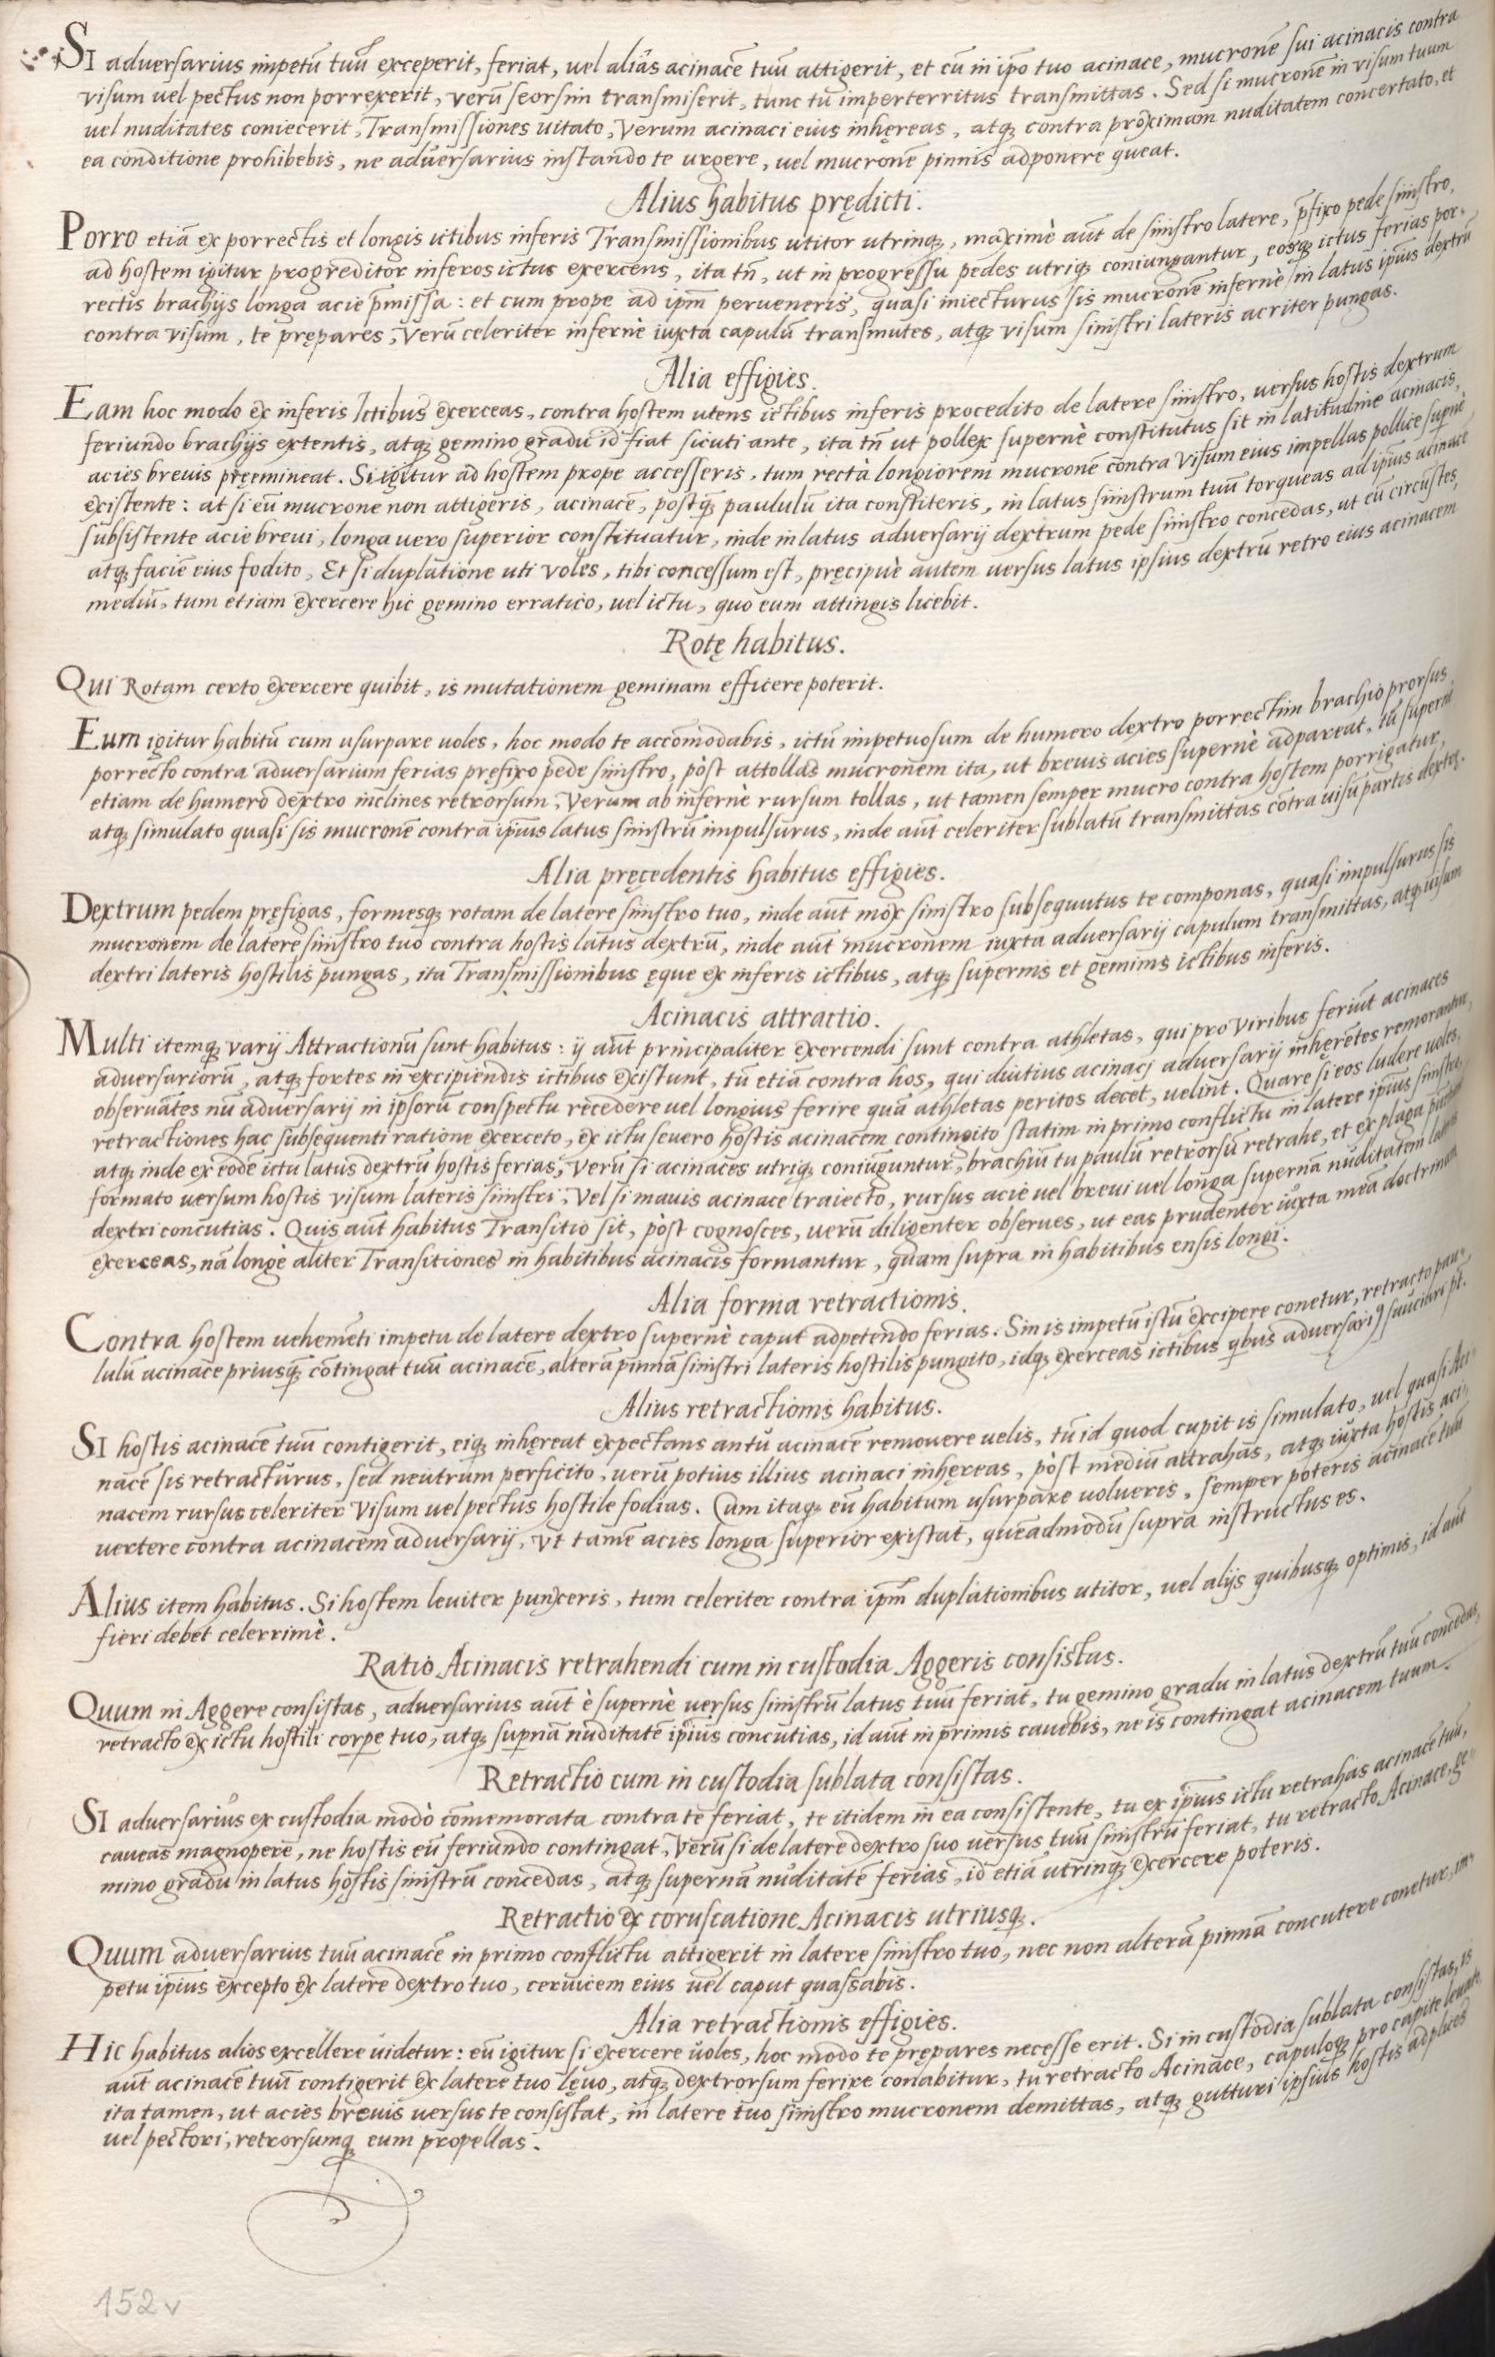 SI adversarius impetū tuū exceperit, feriat, vel aliās acinacē tuū attigerit, et cū in ipo tuo acinace, mucronē sui acinacis contra
visum vel pectus non porrexerit, verū seorsim transmiserit, tunc tū imperterritus transmittas. Sed si mucronē in visum tuum
vel nuditates coniecerit, Transmissiones vitato, Verum acinaci eius inhęreas, atq; contra proximam nuditatem concertato, et
ea conditione prohibebis, ne adversarius instando te urgere, vel mucronē pinnis adponere queat.
Alius habitus prędicti.
Porro etiā ex porrectis et longis ictibus inferis Transmissionibus utitor utrinq;, maximè aūt de sinistro latere, p̄fixo pede sinistro,
ad hostem igitur progreditor inferos ictus exercens, ita tn̄, ut in progressu pedes utriq; coniungantur, eosq; ictus ferias por-
rectis brachijs longa acie p̄missa: et cum prope ad ipm̄ perveneris, quasi iniecturus sis mucronē infernè in latus ipsius dextrū
contra visum, te prępares, Verū celeriter infernè iuxta capulū transmutes, atq; visum sinistri lateris acriter pungas.
Alia effigies.
Eam hoc modo ex inferis Ictibus exerceas, contra hostem utens ictibus inferis procedito de latere sinistro, versus hostis dextrum
feriundo brachijs extentis, atq; gemino gradu id fiat sicuti ante, ita tn̄ ut pollex supernè constitutus sit in latitudine acinacis,
acies brevis pręemineat. Si igitur ad hostem prope accesseris, tum rectà longiorem mucronē contra Visum eius impellas pollice supernè
existente: at si eū mucrone non attigeris, acinacē, postq̄ paululū ita constiteris, in latus sinistrum tuū torqueas ad ipsius acinacē
subsistente acie brevi, longa vero superior constituatur, inde in latus adversarij dextrum pede sinistro concedas, ut eū circūstes,
atq; faciē eius fodito, Et si duplatione uti voles, tibi concessum est, pręcipuè autem versus latus ipsius dextrū retro eius acinacem
mediū, tum etiam exercere hic gemino erratico, vel ictu, quo eum attingis licebit.
Rotę habitus.
QUI Rotam certo exercere quibit, is mutationem geminam efficere poterit.
Eum igitur habitū cum usurpare voles, hoc modo te accōmodabis, ictū impetuosum de humero dextro porrectim brachio prorsus
porrecto contra adversarium ferias prefixo pede sinistro, pòst attollas mucronem ita, ut brevis acies supernè adpareat, tū supernè
etiam de humero dextro inclines retrorsum, Verum ab infernè rursum tollas, ut tamen semper mucro contra hostem porrigatur,
atq; simulato quasi sis mucronē contra ipsius latus sinistrū impulsurus, inde aūt celeriter sublatū transmittas cōtra visū partis dextrę.
Alia pręcedentis habitus effigies.
Dextrum pedem pręfigas, formesq; rotam de latere sinistro tuo, inde aūt mox sinistro subsequutus te componas, quasi impulsurus sis
mucronem de latere sinistro tuo contra hostis latus dextrū, inde aūt mucronem iuxta adversarij capulum transmittas, atq; visum
dextri lateris hostilis pungas, ita Transmissionibus ęque ex inferis ictibus, atq; supernis et geminis ictibus inferis.
Acinacis attractio.
Multi itemq; varij Attractionū sunt habitus: ij aūt principaliter exercendi sunt contra athletas, qui pro viribus feriūt acinaces
adversariorū, atq; fortes in excipiendis ictibus existunt, tū etiā contra hos, qui diutius acinaci adversarij inhęrētes remorantur,
observātes nū adversarij in ipsorū conspectu recedere vel longius ferire quā athletas peritos decet, velint. Quare si eos ludere voles,
retractiones hac subsequenti ratione exerceto, ex ictu severo hostis acinacem contingito statim in primo conflictu in latere ipsius sinistro,
atq; inde ex eodē ictu latus dextrū hostis ferias, Verū si acinaces utriq; coniūguntur, brachiū tu paulū retrorsū retrahe, et ex plaga
formato versum hostis visum lateris sinistri, Vel si mavis acinace traiecto, rursus acie vel brevi vel longa supernā nuditatem lateris
dextri concutias. Quis aūt habitus Transitio sit, pòst cognosces, verū diligenter observes, ut eas prudenter iuxta meā doctrinam
exerceas, nā longè aliter Transitiones in habitibus acinacis formantur, quam supra in habitibus ensis longi.
Alia forma retractionis.
Contra hostem vehemēti impetu de latere dextro supernè caput adpetendo ferias. Sin is impetū istū excipere conetur, retracto pau-
lulū acinace priusq̄ cōtingat tuū acinacē, alterā pinnā sinistri lateris hostilis pungito, idq; exerceas ictibus qibus adversariꝰ sauciari pt̄.
Alius retractionis habitus.
SI hostis acinacē tuū contigerit, eiq; inhęreat expectans an tū acinacē removere velis, tū id quod cupit is simulato, vel quasi Aci-
nacē sis retracturus, sed neutrum perficito, verū potius illius acinaci inhęreas, pòst mediū attrahas, atq; iuxta hostis aci-
nacem rursus celeriter Visum vel pectus hostile fodias. Cum itaq; eū habitum usurpare volueris, semper poteris acinacē tuū
vertere contra acinacem adversarij, ut tamē acies longa superior existat, quēadmodū supra instructus es.
Alius item habitus. Si hostem leviter punxeris, tum celeriter contra ipm̄ duplationibus utitor, vel alijs quibusq; optimis, id aūt
fieri debet celerrimè.
Ratio Acinacis retrahendi cum in custodia Aggeris consistas.
Quum in Aggere consistas, adversarius aūt è supernè versus sinistrū latus tuū feriat, tu gemino gradu in latus dextrū tuū concedas,
retracto ex ictu hostili corpe tuo, atq; supnā nuditatē ipsius concutias, id aūt in primis cavebis, ne is contingat acinacem tuum.
Retractio cum in custodia sublata consistas.
SI adversariꝰ ex custodia modò cōmemorata contra te feriat, te itidem in ea consistente, tu ex ipsius ictu retrahas acinacē tuū,
caveas magnopere, ne hostis eū feriundo contingat, Verū si de latere dextro suo versus tuū sinistrū feriat, tu retracto Acinace, ge-
mino gradu in latus hostis sinistrū concedas, atq; supernā nuditatē ferias, id etiā utrinq; exercere poteris.
Retractio ex coruscatione Acinacis utriusq;.
Quum adversarius tuū acinacē in primo conflictu attigerit in latere sinistro tuo, nec non alterā pinnā concutere conetur, im-
petu ipsius excepto ex latere dextro tuo, cervicem eius vel caput quassabis.
Alia retractionis effigies.
Hic habitus alios excellere videtur: eū igitur si exercere voles, hoc modo te prępares necesse erit. Si in custodia sublata consistas, is
aūt acinacē tuū contigerit ex latere tuo lęvo, atq; dextrorsum ferire conabitur, tu retracto Acinace, capuloq; pro capite levato,
ita tamen, ut acies brevis versus te consistat, in latere tuo sinistro mucronem demittas, atq; gutturi ipsius hostis adplices
vel pectori, retrorsumq; eum propellas.
152v